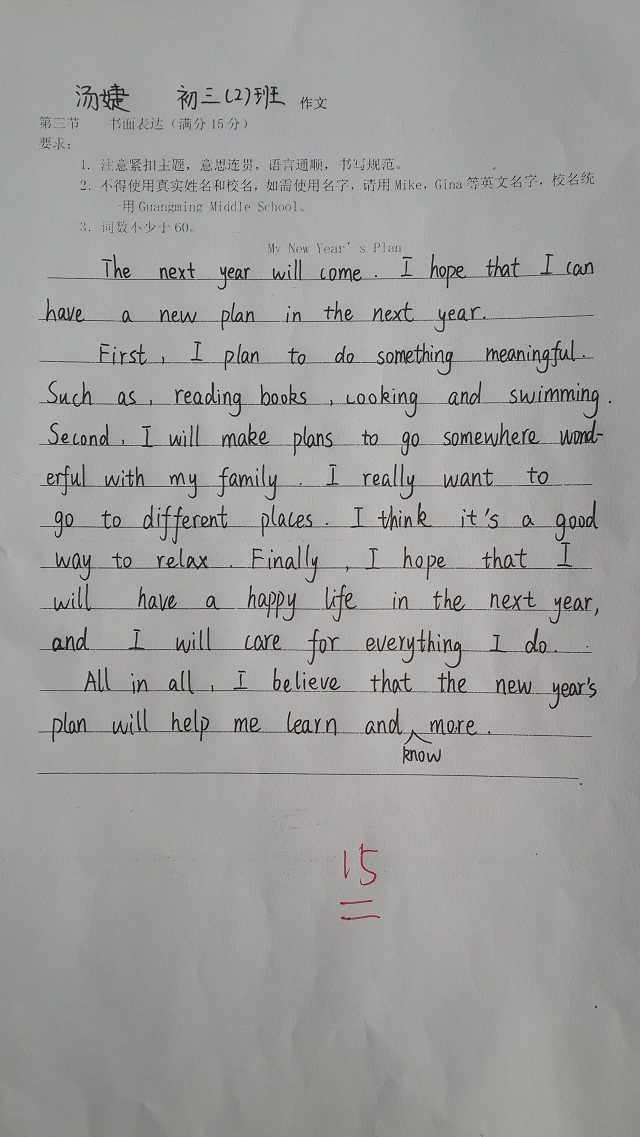 汤婕 初三(2)班 作文
第三节 书面表达(满分15分)
要求:
1. 注意紧扣主题,意思连贯,语言通顺,书写规范。
2. 不得使用真实姓名和校名,如需使用名字,请用Mike, Gina等英文名字,校名统
一用Guangming Middle School。
3. 词数不少于60。
My New Year's Plan
The next year will come. I hope that I can
have a new plan in the next year.
First, I plan to do something meaningful.
Such as, reading books, cooking and swimming.
Second, I will make plans to go somewhere wond-
erful with my family. I really want to
go to different places. I think it's a good
way to relax. Finally, I hope that I
will have a happy life in the next year,
and I will care for everything I do.
All in all, I believe that the new year's
plan will help me learn and more.
know
15